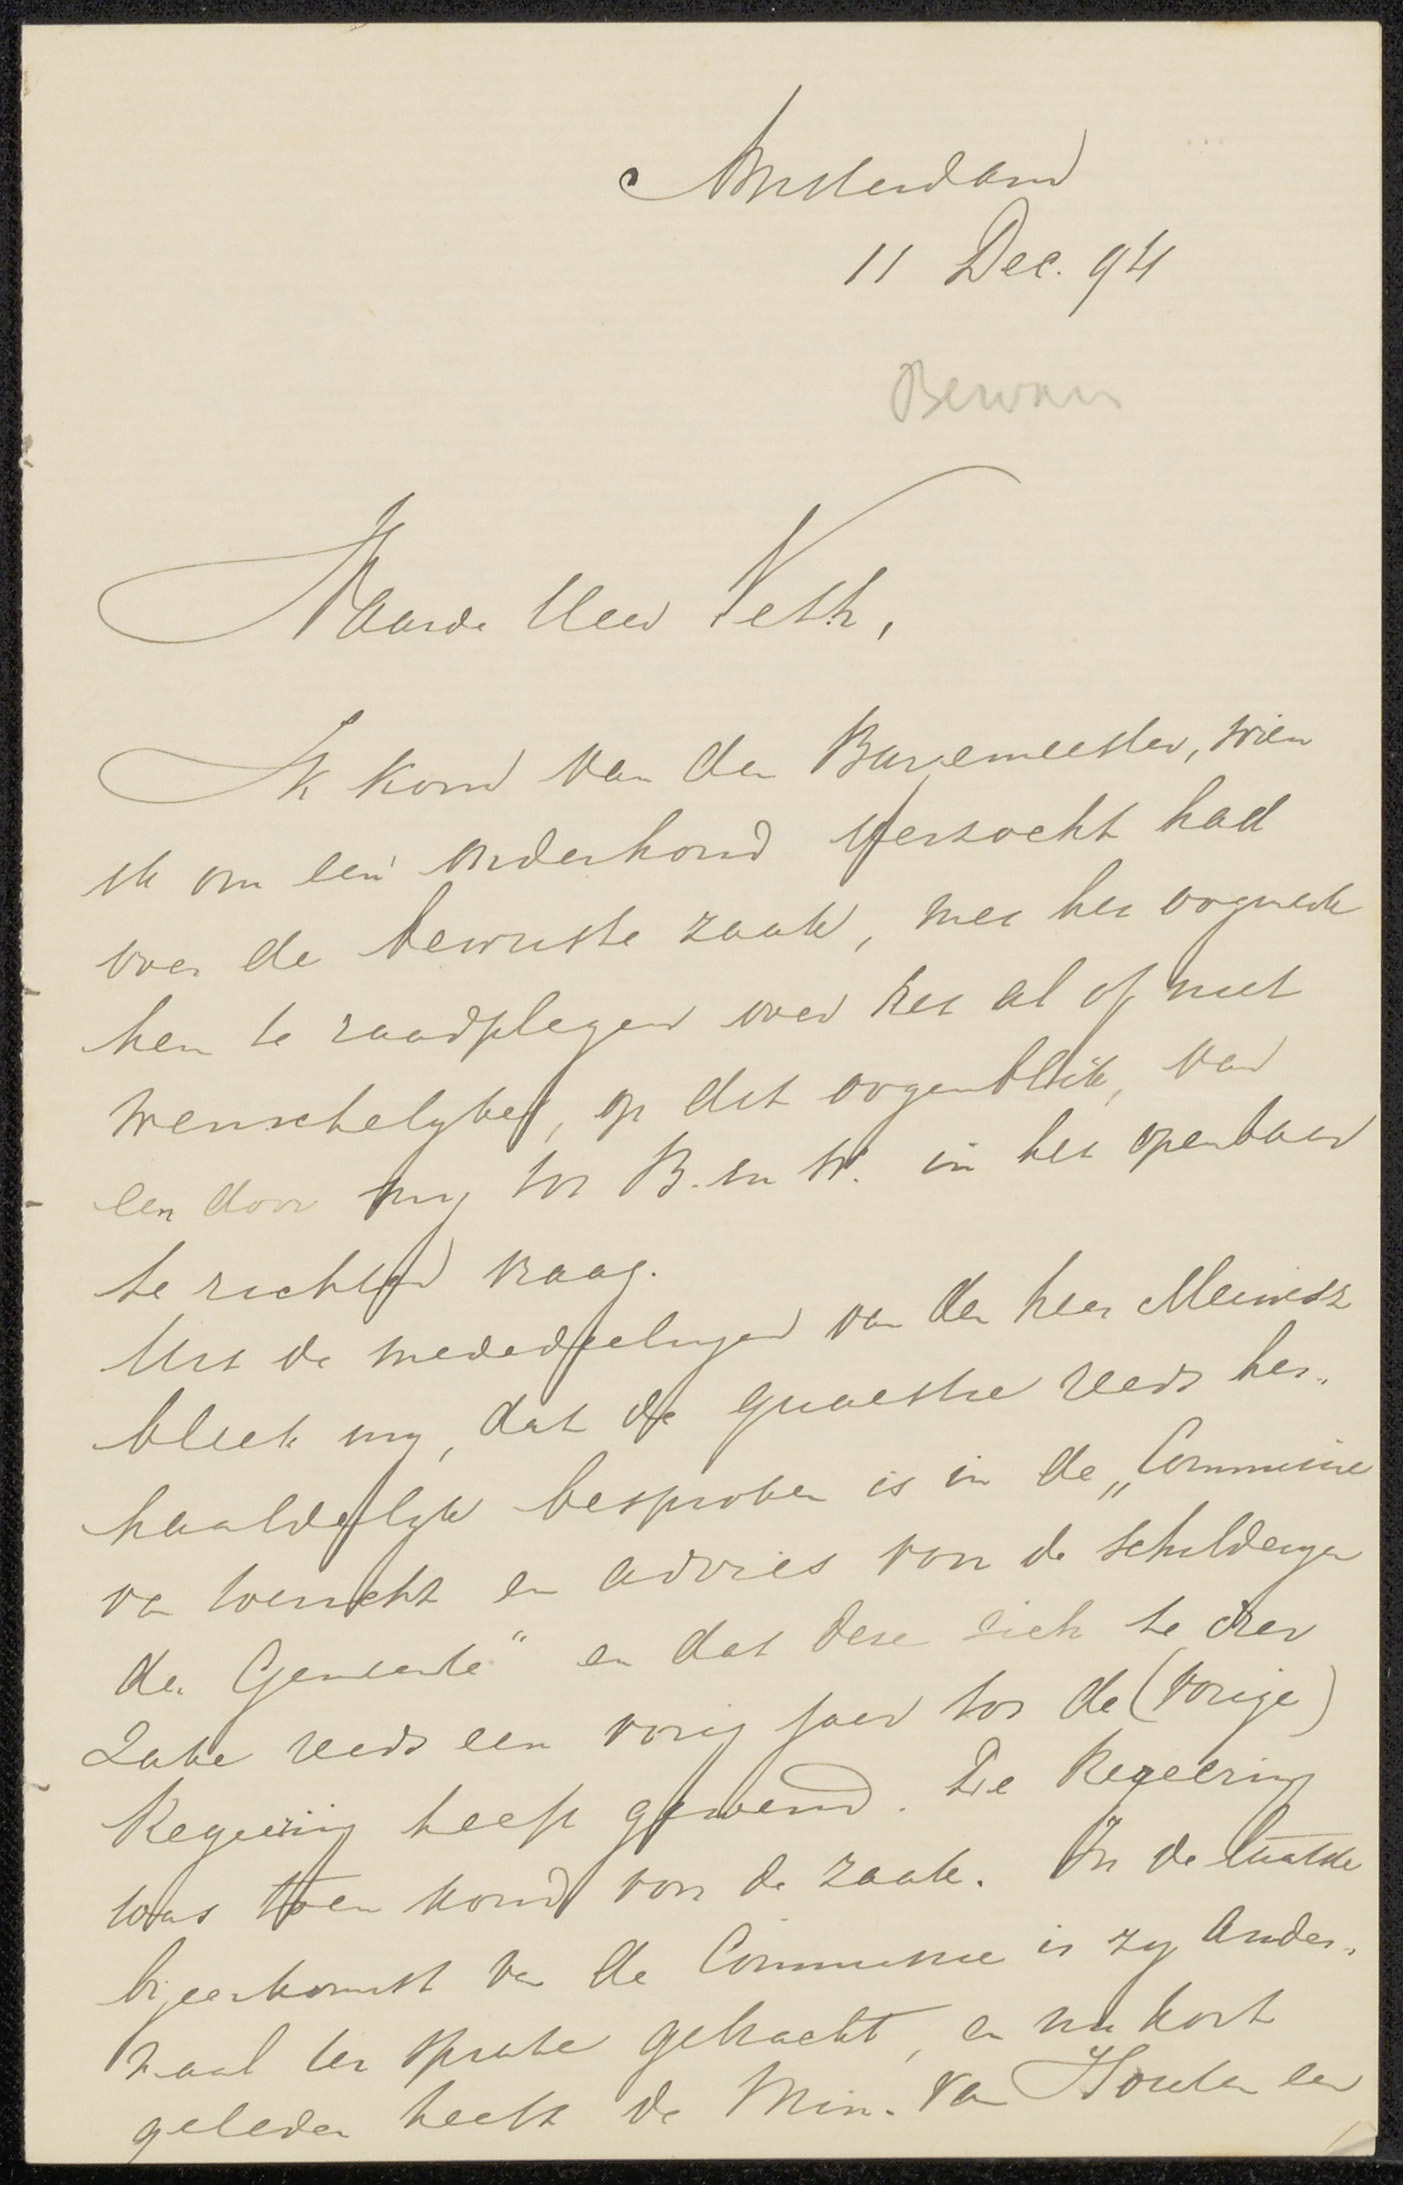 Amsterdam
11 Dec. 94
Waarde Heer Veth,
Ik kom van den Burgemeester, wien
ik om een onderhoud verzocht had
over de bewuste zaak, met het oogmerk
hem te raadplegen over het al of niet
wenschelyke, op dit oogenblik, van
een door my tot B. en W. in het openbaar
te richten vraag.
Uit de mededeelingen van den heer Meinesz
bleek my, dat de quaestie reeds her-
haaldelyk besproken is in de „Commissie
van toezicht en advies voor de schilderyen
der Gemeente" en dat deze zich te dier
zake reeds een vorig jaar tot de (vorige)
Regeering heeft gewend. De Regeering
was toen koud voor de zaak. In de laatste
byeenkomst van de Commissie is zy ander-
maal ter sprake gebracht, en nu kort
geleden heeft de Min. Van Houten een